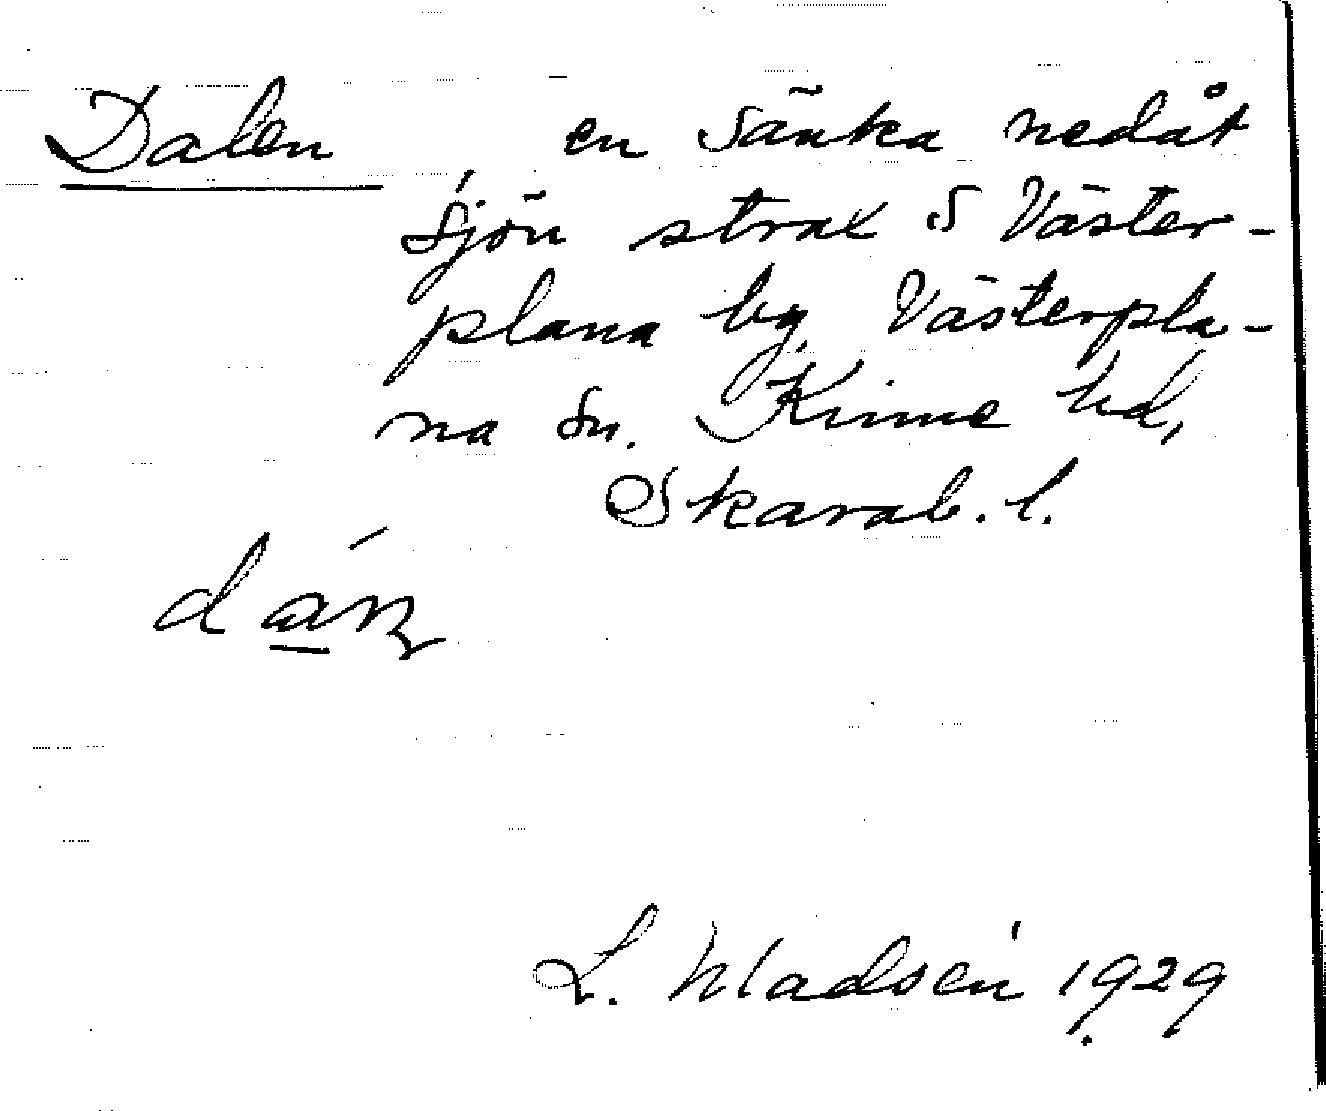 Dalen en sänka nedåt
sjön strax S Väster-
plana by, Västerpla-
na sn. Kinne hd,
Skarab. l.
L. Madsén 1929